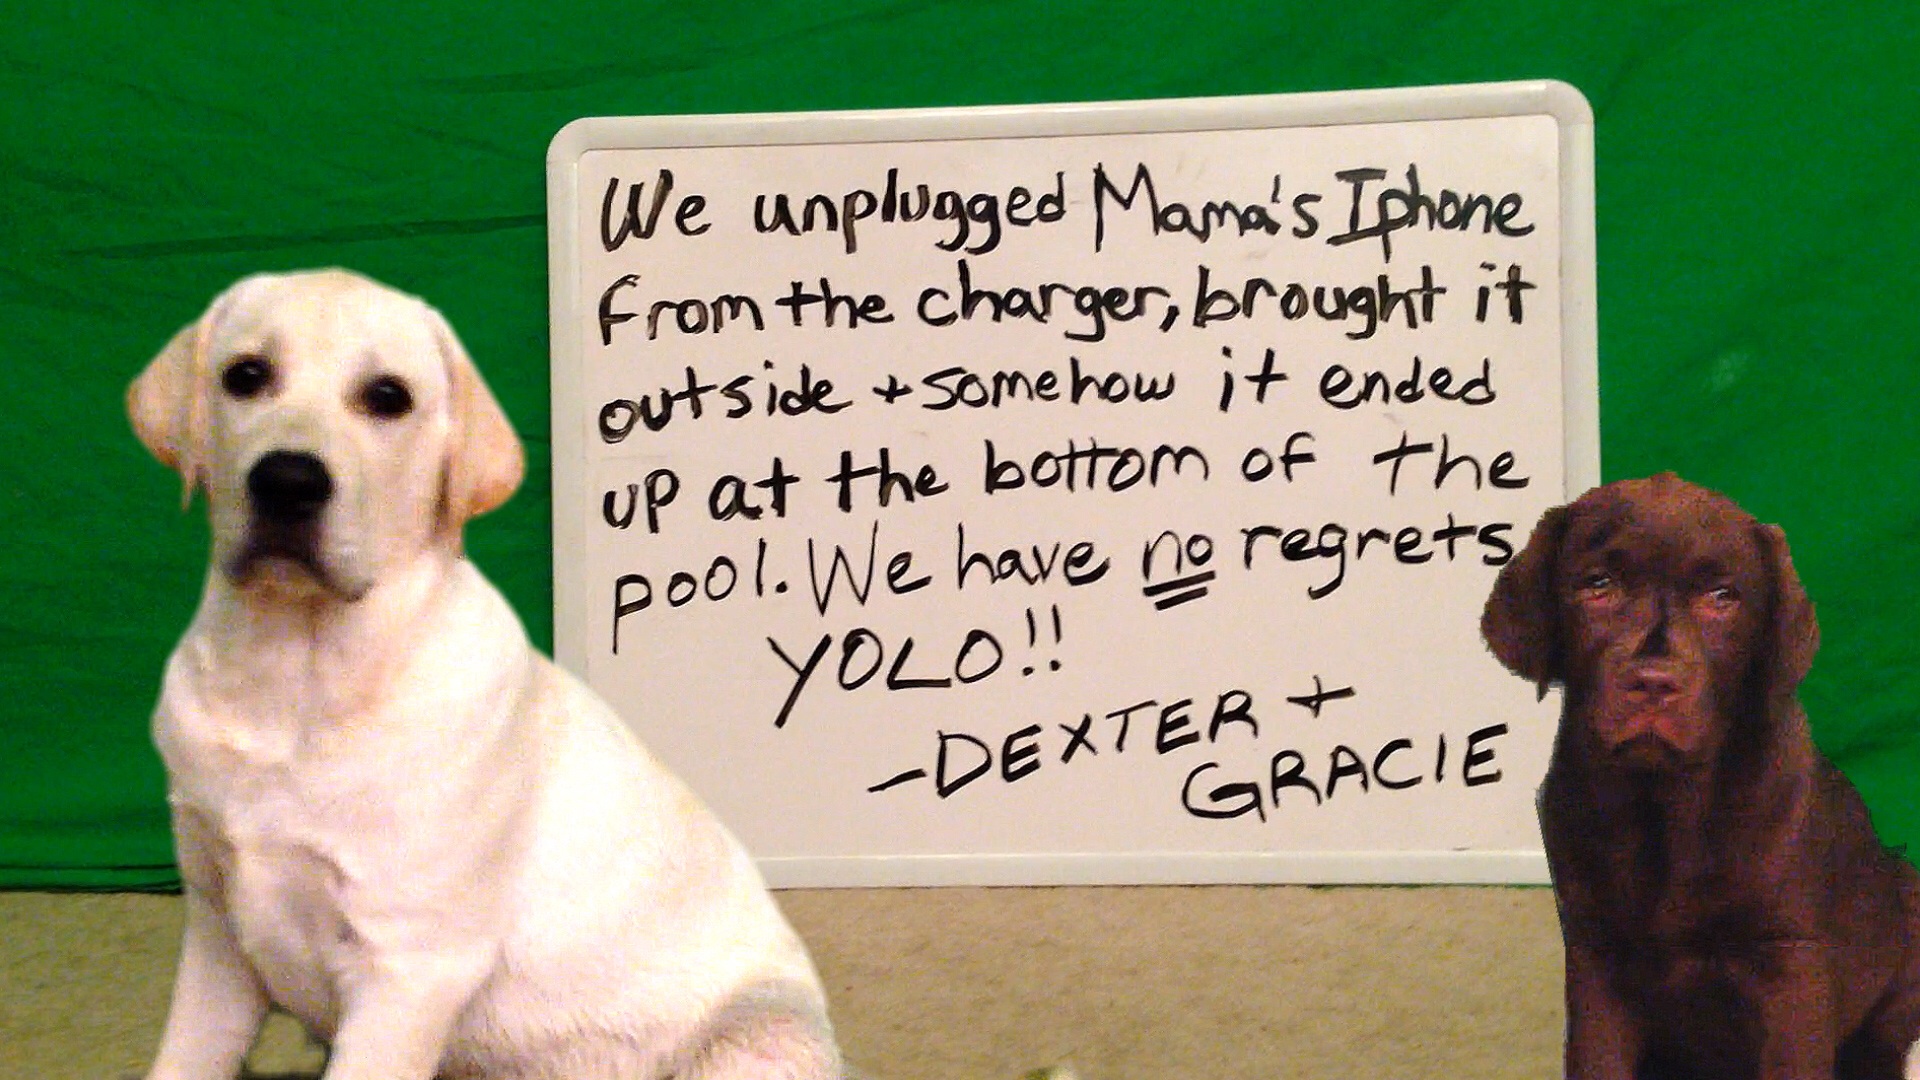 We unplugged Mama's Iphone
from the charger, brought it
outside + somehow it ended
up at the bottom of the
pool. We have no regrets
YOLO!!
-DEXTER +
GRACIE